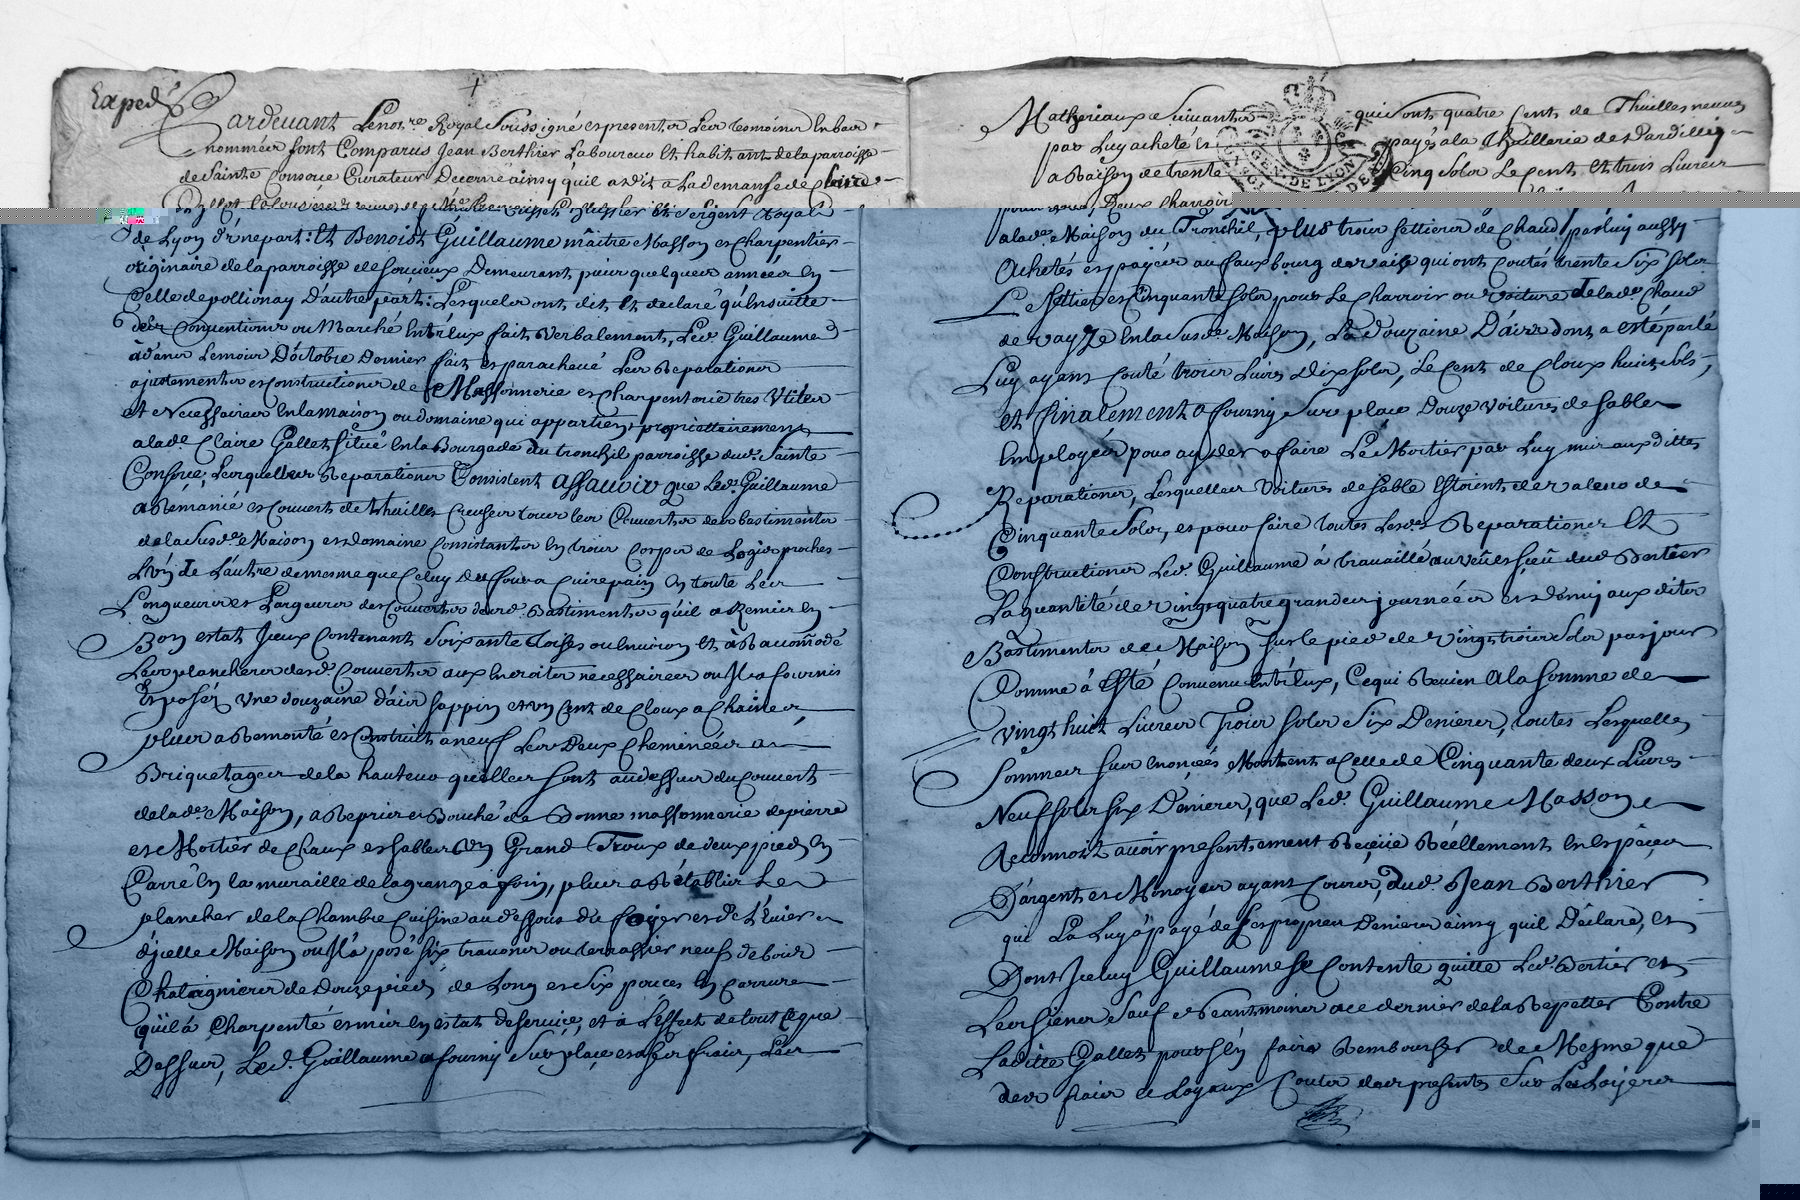 Exped
Pardevant Le no.re Royal Soussigné et presents Les tesmoins En bas
nommés sont Comparus Jean Berthier Laboureur Et habitant de la parroisse
de Sainte Consorce Curateur Decerné ainsy quil a dit a La demanse de Claire
Gallet Sergent Royal
de Lyon d'une part: Et Benoist Guillaume maitre Masson et Charpentier
originaire de la parroisse de Soucieux Demeurant puis quelques années En
Celle de pollionay D'autre part: Lesquels ont dit Et declaré qu'Ensuitte
des Conventions ou Marché Entr'Eux fait Verbalement, Led. Guillaume
Le mois D'octobre Dernier fait et paracheué Les Reparations
ajustements et Constructions de Massonnerie et Charpenterie tres Utiles
et Necessaires En la maison ou domaine qui appartient proprietairement
a lad. Claire Gallet Situé En la Bourgade du tronchil parroisse dud. Sainte
Consorce, Lesquelles Reparations Consistent assauoir que Led. Guillaume
a Remanié et Couvert de thuilles Creuses tous les Couverts des bastiments
de la Susd. Maison et domaine Consistants En trois Corps de Logis proches
L'un de L'autre de mesme que Celuy du four a Cuire pain En toute Leur
Longueur et Largeur des Couverts desd. Bastiments qu'il a Remis En
Bon estat Iceux Contenant Soixante toises ou Environ Et à Racomodé
Les planchers desd. Couverts aux Endroits necessaires ou Il a fournis
Et posés une douzaine d'ais sappin et un Cent de Cloux a Chaine
plus a Remonté et Construit a neuf Les Deux Cheminées
Briquetages de la hauteur qu'elles sont au dessus du Couvert
de lad. Maison, a Repris et Bouché de Bonne massonnerie de pierre
et Mortier de Chaux et sables Un Grand Troux de deux pieds En
Carré En la muraille de la grange a foin, plus a Rétablir Le
plancher de la Chambre Cuisine au dessous du foyer et de L'Euier
d'jcelle Maison ou Il a posé six travons ou terrassier neufs de bois
Chataignier de Douze pieds de Long et Six pouces En Carrure
qu'il a Charpenté et mis En estat de seruice, et à L'effect de tout Ce que
Dessus, Led. Guillaume a fourny Sur place et a ses frais, Les
Matheriaux Suivants qui sont quatre Cent de Thuilles neuves
par Luy acheté Et payés a la Thuillerie de Dardilly
a Raison de trente Cinq solz Le Cent Et trois Livres
pour Deux Charrois
a lad. Maison du Tronchil, plus trois settiers de Chaud par luy aussy
Achetés et payés au faux bourg de vaise qui ont Coutés trente Six solz
Le settier et Cinquante solz pour Le Charroir ou voiture de lad. Chaud
de vayze En la Susd. Maison, La Douzaine D'ais dont a esté parlé
Luy ayant Couté trois Livres Dix solz, Le Cent de Cloux huit sols,
et finalement a fourny Sur place Douze voitures de sable
Employés pour ayder a faire Le Mortier par Luy mis aux dittes
Reparations, Lesquelles Voitures de sable Estoient de valeur de
Cinquante Solz, et pour faire toutes Lesd. Reparations Et
Constructions Led. Guillaume à travaillé au vû et sçeû dud. Bertier
La quantité de vingt quatre grandes journées et demy aux dits
Bastiments de Maison sur le pied de vingt trois Solz par jour
Comme à Esté Convenu Entr'Eux, Ce qui Revien A la somme de
vingt huit Livres Trois solz Six Deniers, toutes Lesquelles
Sommes sus Enoncées Montent a Celle de Cinquante deux Livres
Neuf solz six Deniers, que Led. Guillaume Masson
Reconnoit auoir presentement Reçeüe Réellement En Espèces
D'argent et Monoyes ayant Cours, Dud. Jean Berthier
qui La Luy à payé de ses propres Deniers ainsy quil Déclare, et
Dont Iceluy Guillaume Se Contente quitte Led. Bertier et
Les siens Sauf et Neantmoins a ce dernier de la Repetter Contre
Laditte Gallet pour s'En faire Rembourser de Mesme que
des frais et Loyaux Couts des presents Sur Les Loyers